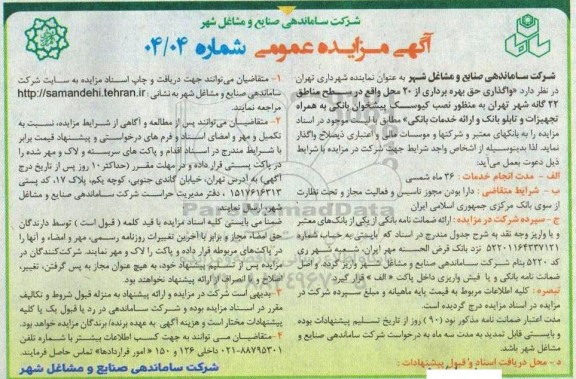 شرکت ساماندهی صنایع و مشاغل شهر
آگهی مزایده عمومی شماره ۰۴/۰۴
شرکت ساماندهی صنایع و مشاغل شهر به عنوان نماینده شهرداری تهران
در نظر دارد «واگذاری حق بهره برداری از ۲۰ محل واقع در سطح مناطق
۲۲ گانه شهر تهران به منظور نصب کیوسک پیشخوان بانکی به همراه
تجهیزات و تابلو بانک و ارائه خدمات بانکی» مطابق با موجود در اسناد
مزایده را به بانکهای معتبر و شرکتها و موسسات مالی و اعتباری ذیصلاح واگذار
نماید. لذا بدینوسیله از اشخاص واجد شرایط جهت شرکت در مزایده با شرایط
ذیل دعوت بعمل می‌آید:
الف - مدت انجام خدمات : ۳۶ ماه شمسی
ب - شرایط متقاضی : دارا بودن مجوز تاسیس و فعالیت مجاز و تحت نظارت
از سوی بانک مرکزی جمهوری اسلامی ایران
ج - سپرده شرکت در مزایده : ارائه ضمانت نامه بانکی از یکی از بانک‌های معتبر
و یا واریز وجه نقد به شرح جدول مندرج در اسناد که بایستی به حساب شماره
۵۲۲۰۱۱۶۴۳۳۷۱۲۱ نزد بانک قرض الحسنه مهر ایران، شعبه مرکزی
کد ۵۲۲۰ بنام شرکت ساماندهی صنایع و مشاغل شهر واریز گردد و اصل
ضمانت نامه بانکی و یا فیش واریزی داخل پاکت « الف » قرار گیرد.
تبصره : کلیه اطلاعات مربوط به قیمت پایه ماهیانه و مبلغ سپرده شرکت در
مزایده در اسناد مزایده درج گردیده است.
مدت اعتبار ضمانت نامه مذکور بود (۹۰) روز از تاریخ تسلیم پیشنهادات بوده
و بایستی قابل تمدید به مدت سه ماه به درخواست شرکت ساماندهی صنایع و
مشاغل شهر باشد.
د - محل دریافت اسناد و قبول پیشنهادات :
۱- متقاضیان می‌توانند جهت دریافت و چاپ اسناد مزایده به سایت شرکت
ساماندهی صنایع و مشاغل شهر به نشانی : http://samandehi.tehran.ir
مراجعه نمایند.
۲- متقاضیان می‌توانند پس از مطالعه و آگاهی از شرایط مزایده، نسبت به
تکمیل و مهر و امضای اسناد و فرم های درخواستی و پیشنهاد قیمت برابر
با شرایط مندرج در اسناد اقدام و پاکت های سربسته و لاک و مهر شده را
در پاکت پستی قرار داده و در مهلت مقرر (حداکثر ۱۰ روز پس از تاریخ درج
آگهی) به آدرس تهران، خیابان گاندی جنوبی، کوچه یکم، پلاک ۱۷، کد پستی
۱۵۱۷۶۱۶۳۱۳ ، دفتر مدیریت حراست شرکت ساماندهی صنایع و مشاغل
شهر، ارسال نمایند.
ضمنا می بایستی کلیه اسناد مزایده با قید کلمه ( قبول است ) توسط دارندگان
حق امضاء مجاز و برابر با آخرین تغییرات روزنامه رسمی، مهر و امضاء و آنها را
در پاکت‌های مربوطه قرار داده و پاکت را لاک و مهر نمایند. شرکت‌کنندگان در
مزایده پس از تسلیم پیشنهاد خود، به هیچ عنوان مجاز به پس گرفتن، تغییر،
اصلاح و یا انصراف از ارائه پیشنهاد نخواهند بود.
۳- بدیهی است شرکت در مزایده و ارائه پیشنهاد به منزله قبول شروط و تکالیف
مقرر در اسناد مزایده بوده و شرکت ساماندهی در رد یا قبول یک یا کلیه
پیشنهادات مختار است و هزینه آگهی به عهده برنده/ برندگان مزایده خواهد بود.
۴- متقاضیان می توانند به جهت کسب اطلاعات بیشتر با شماره تلفن
۰۲۱-۸۸۷۹۵۳۰۱ داخلی ۱۳۶ و ۱۵۰ « امور قراردادها» تماس حاصل فرمایند.
شرکت ساماندهی صنایع و مشاغل شهر